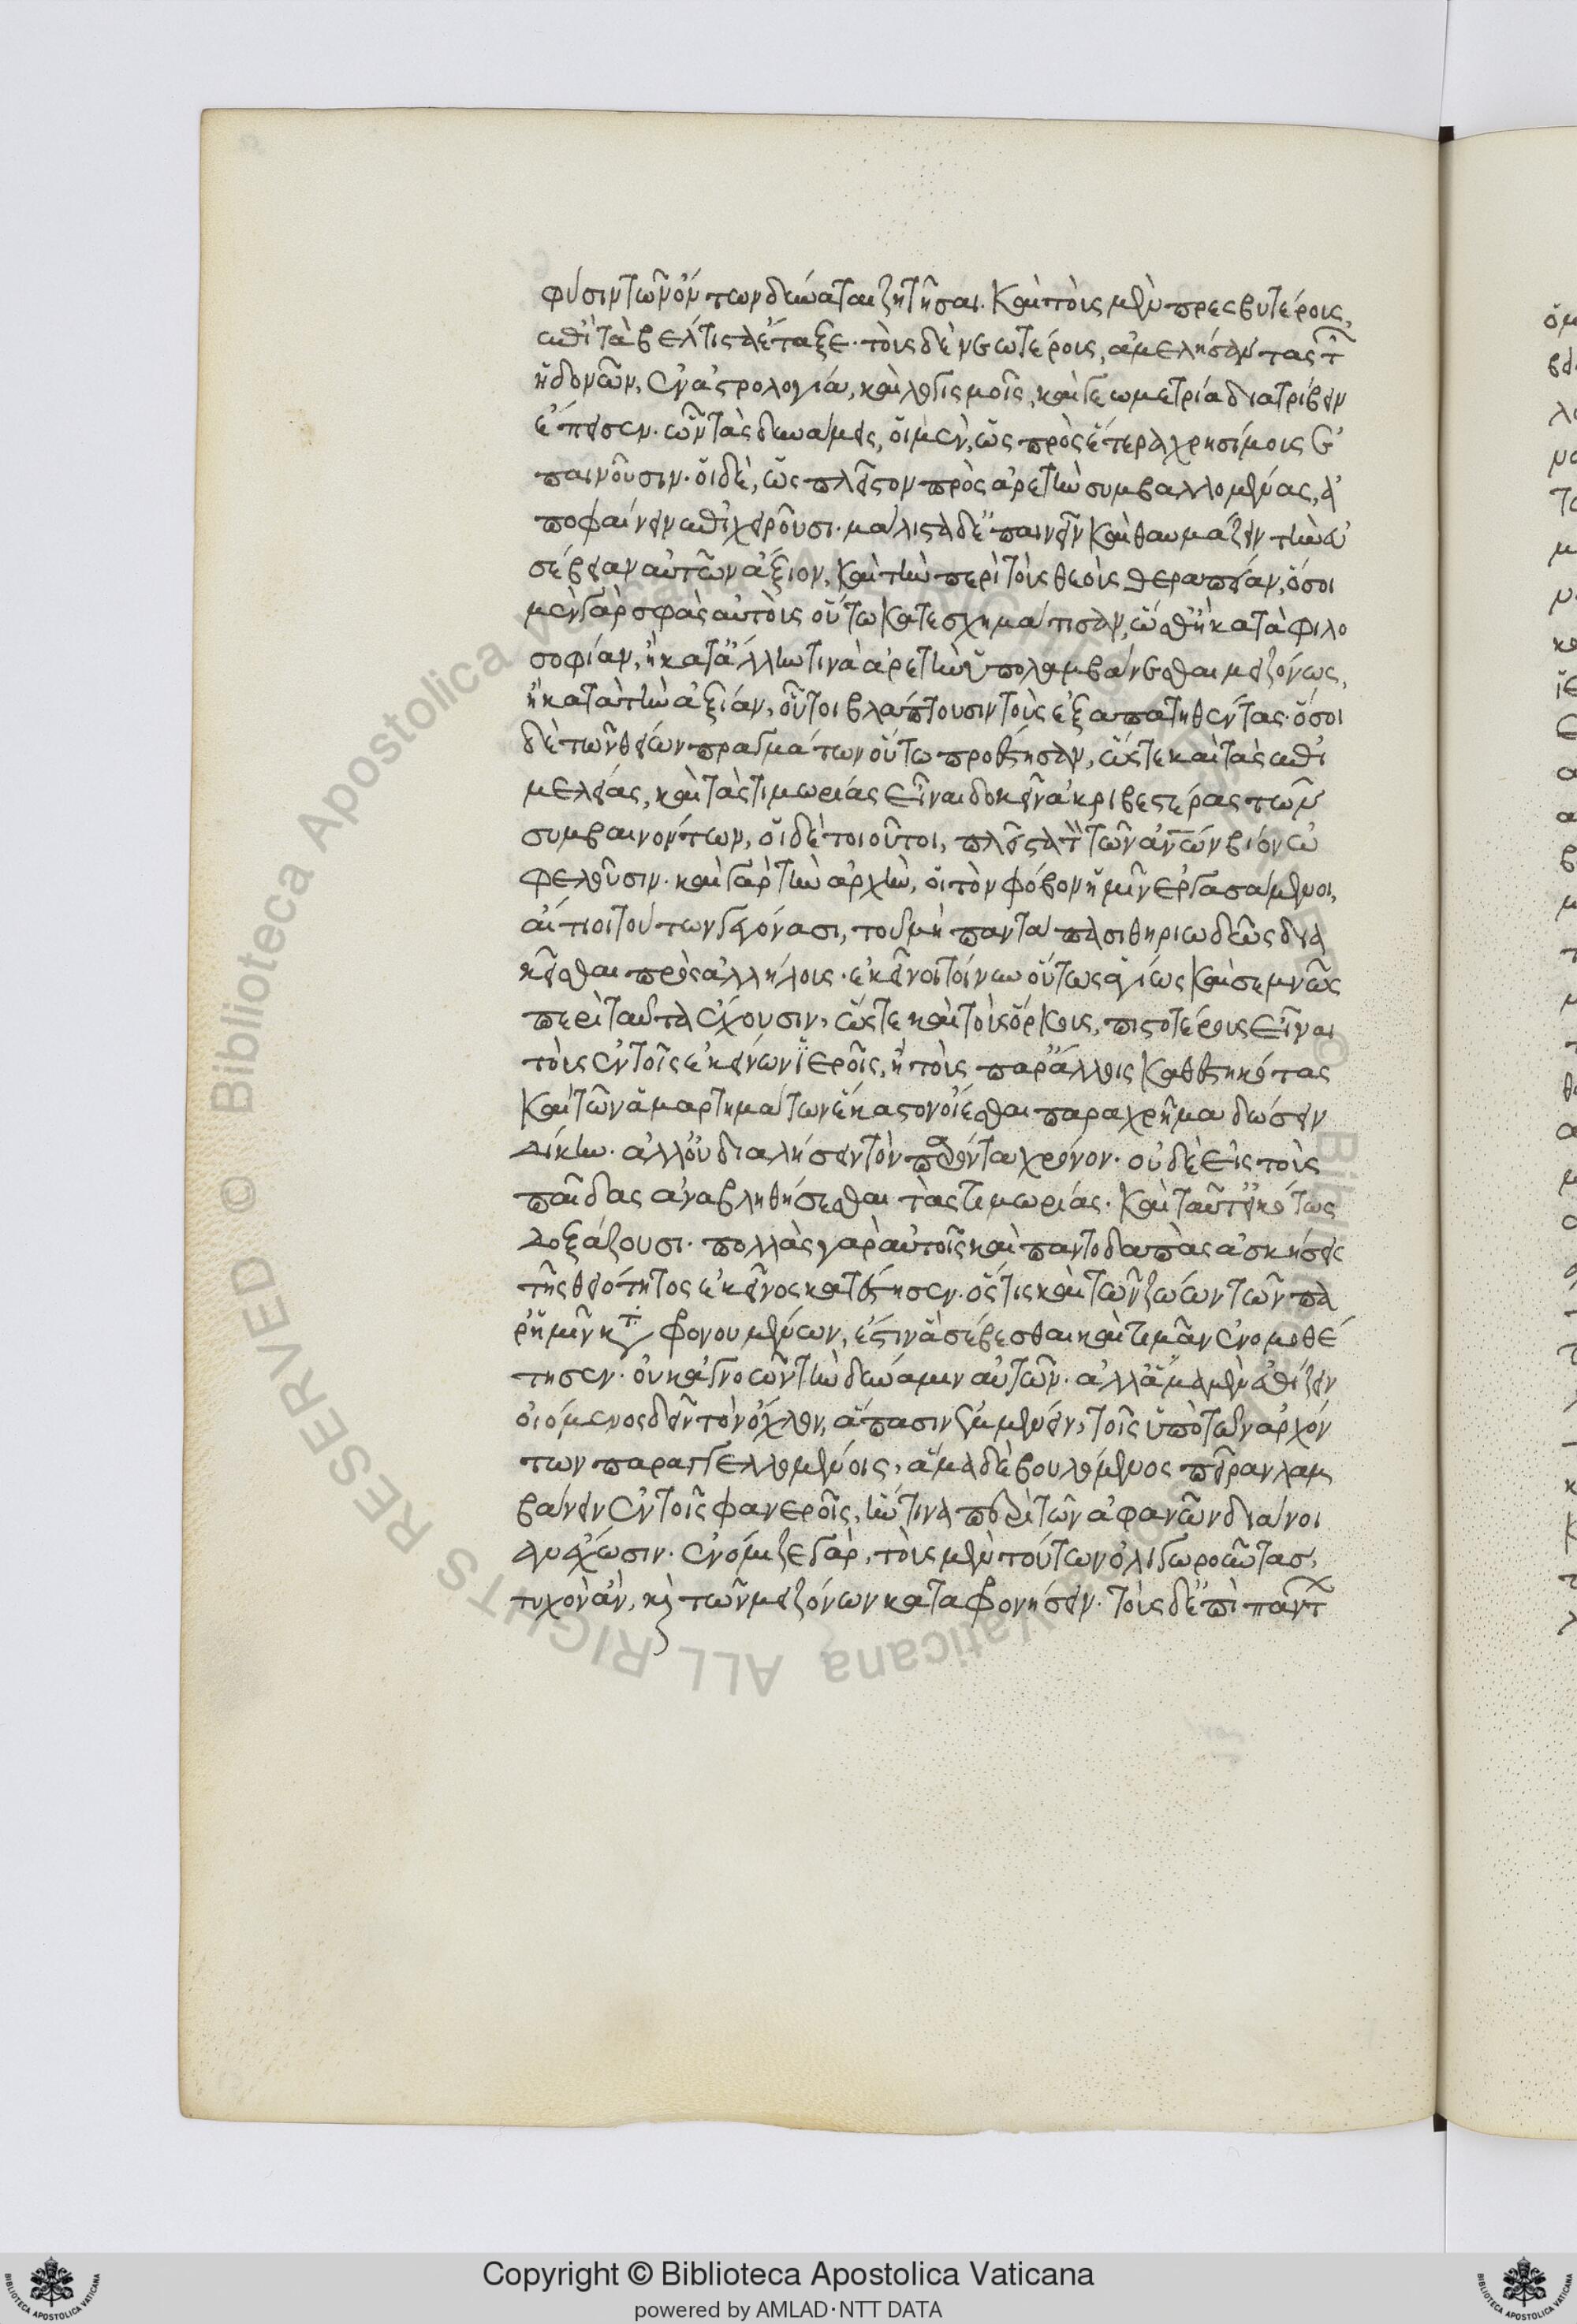 φύσιν τῶν ὄντων δύναται ζητῆσαι. καὶ τοὺς μὲν πρεσβυτέρους,
ἐπὶ τὰ βέλτιστα ἔταξε· τοὺς δὲ νεωτέρους, ἀμελήσαντας τῶν
ἡδονῶν, ἐν ἀστρολογία, καὶ λογισμοῖς, καὶ γεωμετρία διατρίβειν
ἔπεισεν. ὧν τὰς δυνάμεις, οἱ μὲν, ὡς πρὸς ἕτερα χρησίμους ἐ
παινοῦσιν· οἱ δὲ, ὡς πλεῖστον πρὸς ἀρετὴν συμβαλλομένας, ἀ
ποφαίνειν ἐπιχειροῦσι. μάλιστα δ' ἐπαινεῖν καὶ θαυμάζειν τὴν εὐ
σέβειαν αὐτῶν ἄξιον, καὶ τὴν περὶ τοὺς θεοὺς θεραπείαν, ὅσοι
μὲν γὰρ σφᾶς αὐτοὺς οὕτω κατεσχημάτισαν, ὥσθ' ἢ κατὰ φιλο
σοφίαν, ἢ κατ' ἄλλην τινὰ ἀρετὴν ὑπολαμβάνεσθαι μειζόνως,
ἢ κατὰ τὴν ἀξίαν, οὗτοι βλάπτουσιν τοὺς ἐξαπατηθέντας· ὅσοι
δὲ τῶν θείων πραγμάτων οὕτω προέστησαν, ὥστε καὶ τὰς ἐπι
μελείας, καὶ τὰς τιμωρίας εἶναι δοκεῖν ἀκριβεστέρας τῶν
συμβαινόντων, οἱ δὲ τοιοῦτοι, πλεῖστα τὸν τῶν ἀνων βίον ὠ
φελοῦσιν. καὶ γὰρ τὴν ἀρχὴν, οἱ τὸν φόβον ἡμῖν ἐργασάμενοι,
αἴτιοι τούτων γεγόνασι, τοῦ μὴ παντάπασι θηριωδῶς δια
κεῖσθαι πρὸς ἀλλήλους. ἐκεῖνοι τοίνυν οὕτως ἁγίως καὶ σεμνῶς
περὶ ταῦτα ἔχουσιν, ὥστε καὶ τοὺς ὅρκους, πιστοτέρους εἶναι
τοὺς ἐν τοῖς ἐκείνων ἱεροῖς, ἢ τοὺς παρ' ἄλλοις καθεστηκότας
καὶ τῶν ἁμαρτημάτων ἕκαστον οἴεσθαι παραχρῆμα δώσειν
δίκην. ἀλλ' οὐ διαλήσειν τὸν παρόντα χρόνον. οὐδὲ εἰς τοὺς
παῖδας ἀναβληθήσεσθαι τὰς τιμωρίας. καὶ ταῦτ' εἰκότως
δοξάζουσι. πολλὰς γὰρ αὐτοῖς καὶ παντοδαπὰς ἀσκήσεις
τῆς θειότητος ἐκεῖνος κατέστησεν. ὅστις καὶ τῶν ζώων τῶν πα
ρ' ἡμῖν καταφρονουμένων, ἔστιν ἃ σέβεσθαι καὶ τιμᾶν ἐνομοθέ
τησεν. οὐκ ἀγνοῶν τὴν δύναμιν αὐτῶν. ἀλλ' ἅμα μὲν ἐθίζειν
οἰόμενος δεῖν τὸν ὄχλον, ἅπασιν ἐμμένειν, τοῖς ὑπὸ τῶν ἀρχόν
των παραγγελλομένοις, ἅμα δὲ βουλόμενος πεῖραν λαμ
βάνειν ἐν τοῖς φανεροῖς, ἥντινα περὶ τῶν ἀφανῶν διάνοι
αν ἔχωσιν. ἐνόμιζε γὰρ, τοὺς μὲν τούτων ὀλιγωροῦντας,
τυχὸν ἂν, καὶ τῶν μειζόνων καταφρονήσειν. τοὺς δ' ἐπὶ πάντ
Copyright © Biblioteca Apostolica Vaticana
powered by AMLAD·NTT DATA